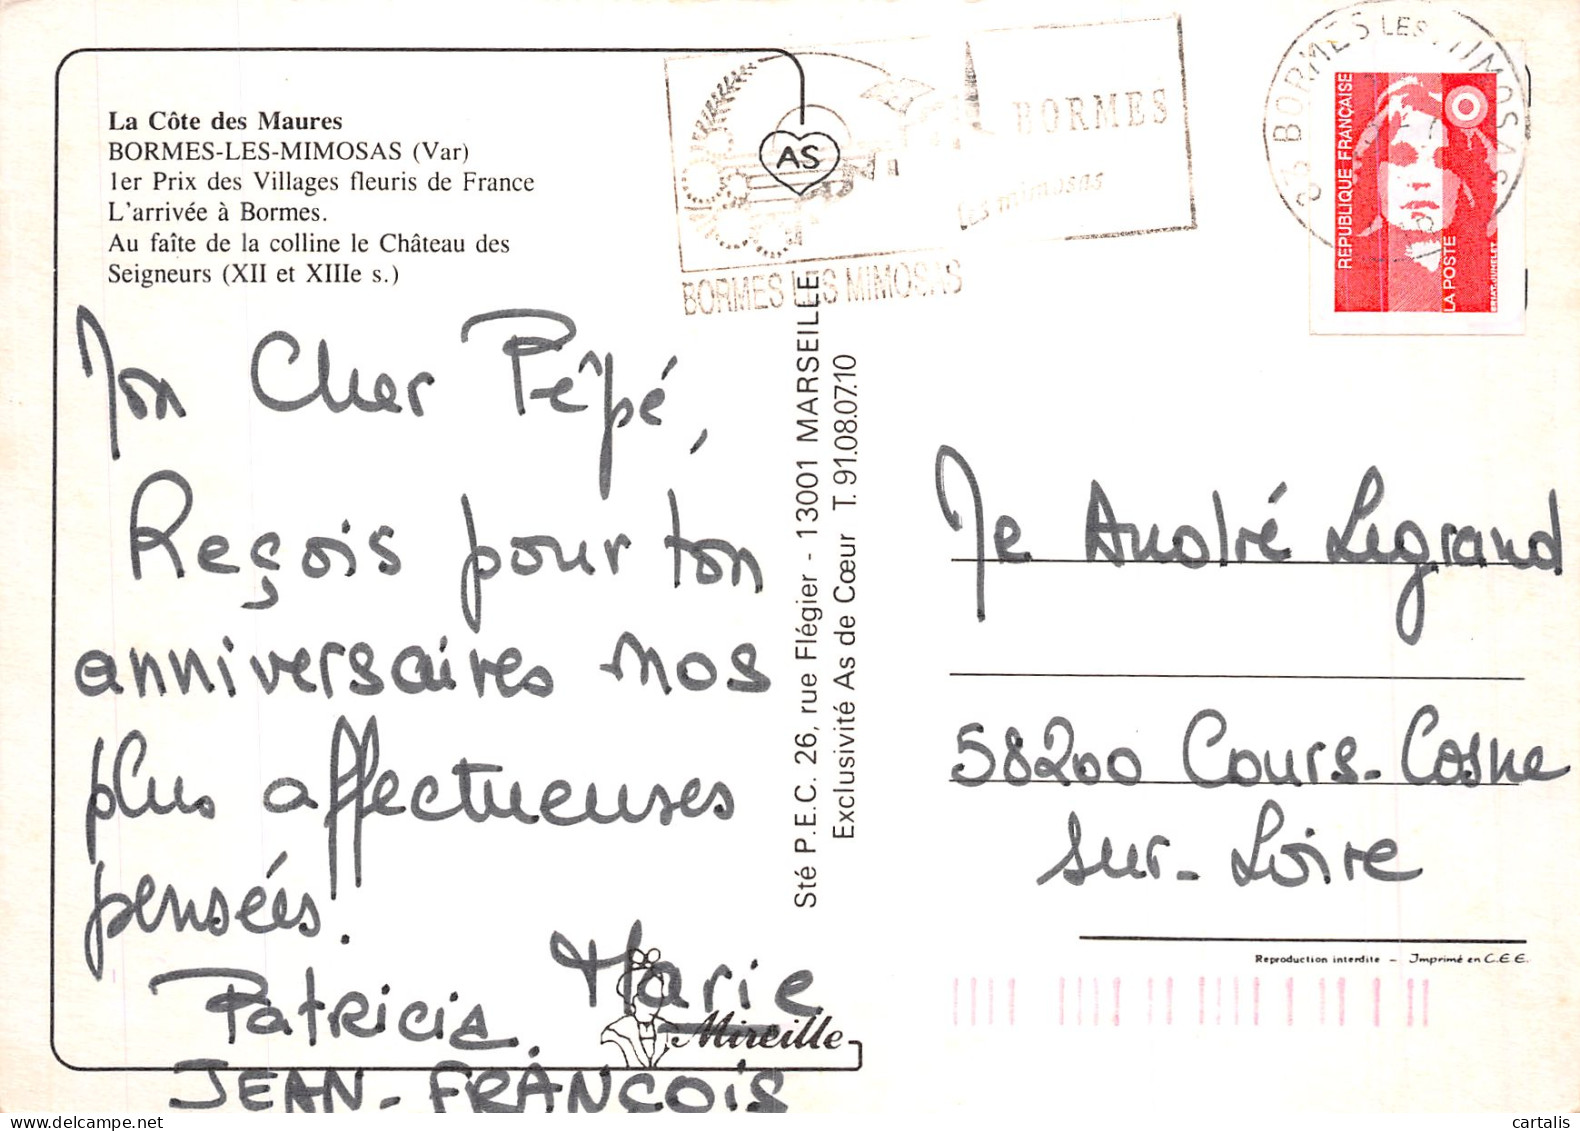 La Côte des Maures
BORMES-LES-MIMOSAS (Var)
1er Prix des Villages fleuris de France
L'arrivée à Bormes.
Au faîte de la colline le Château des
Seigneurs (XII et XIIIe s.)
AS
BORMES
les mimosas
BORMES LES MIMOSAS
83 BORMES LES MIMOSAS
REPUBLIQUE FRANÇAISE
LA POSTE
BRIAT.JUMELET
Mon Cher Pêpé,
Reçois pour ton
anniversaires nos
plus affectueuses
pensées.
Patricia. Marie
JEAN-FRANÇOIS
Mireille
Sté P.E.C. 26, rue Flégier - 13001 MARSEILLE
Exclusivité As de Cœur T. 91.08.07.10
Me André Legrand
58200 Cours-Cosne
sur-Loire
Reproduction interdite - Imprimé en C.E.E.
cartalis